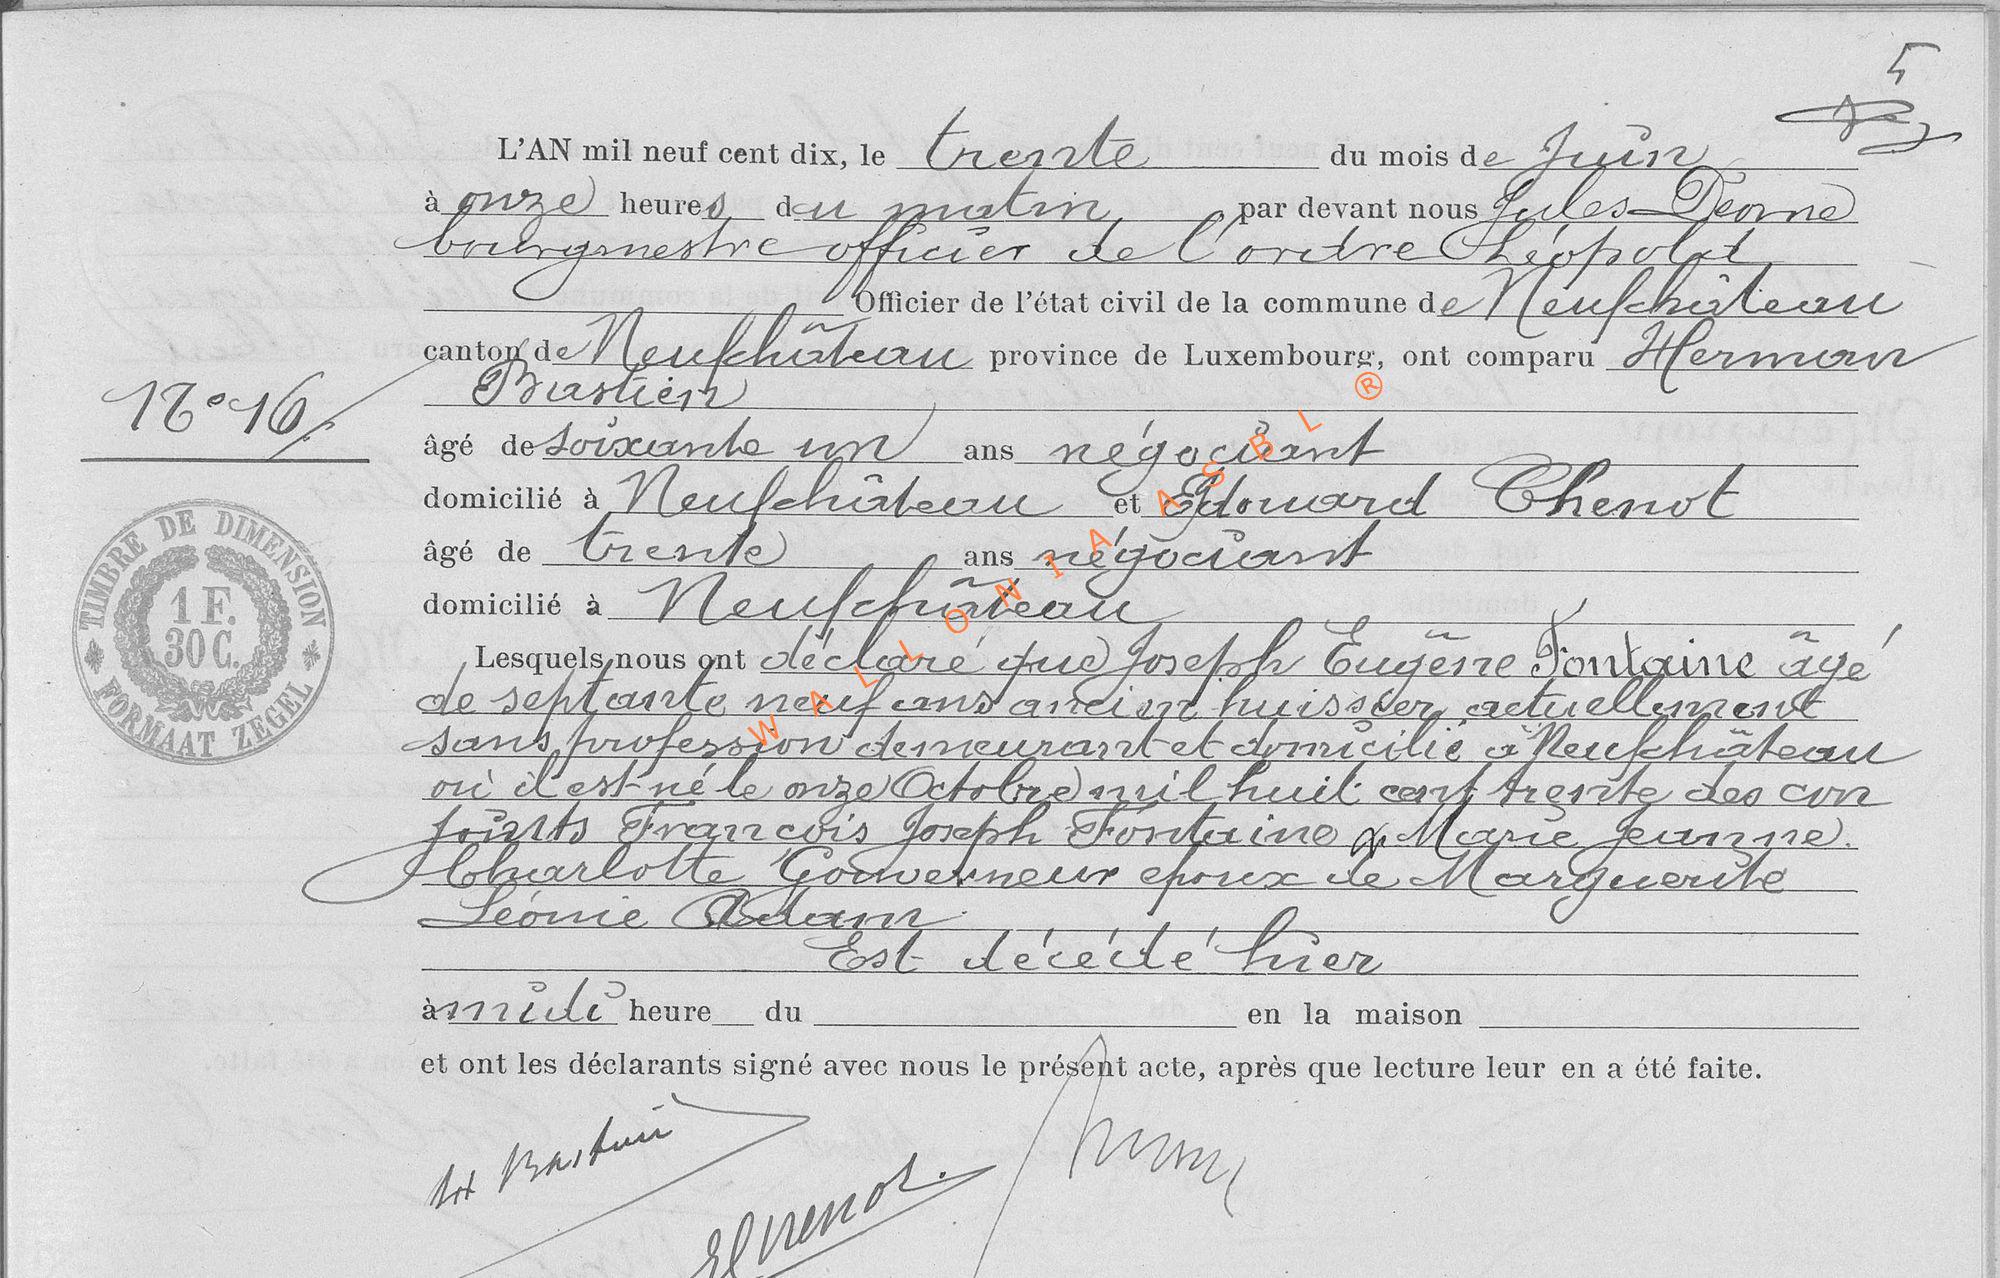 5
L'AN mil neuf cent dix, le trente du mois de Juin
à onze heures du matin par devant nous Jules
bourgmestre officier de l'ordre Léopold
Officier de l'état civil de la commune de Neufchâteau
canton de Neufchâteau province de Luxembourg, ont comparu Herman
Bastien
N° 16
âgé de soixante un ans négociant
domicilié à Neufchâteau et Edouard Chenot
âgé de trente ans négociant
domicilié à Neufchâteau
TIMBRE DE DIMENSION
1 F.
30 C.
FORMAAT ZEGEL
Lesquels nous ont déclaré que Joseph Eugène Fontaine âgé
de septante neuf ans ancien huissier actuellement
sans profession demeurant et domicilié à Neufchâteau
où il est né le onze Octobre mil huit cent trente des con
joints François Joseph Fontaine & Marie Jeanne
Charlotte Gouverneur époux de Marguerite
Léonie Adam
Est décédé hier
à midi heure du en la maison
et ont les déclarants signé avec nous le présent acte, après que lecture leur en a été faite.
Bastien
EChenot
WALLONIA ASBL ®